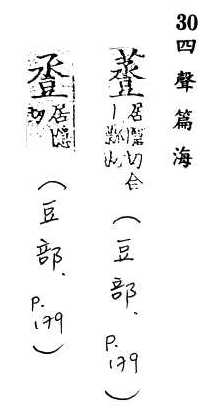 30 四聲篇海
居隱切合 (豆部, P.179)
居隱切 (豆部, P.179)